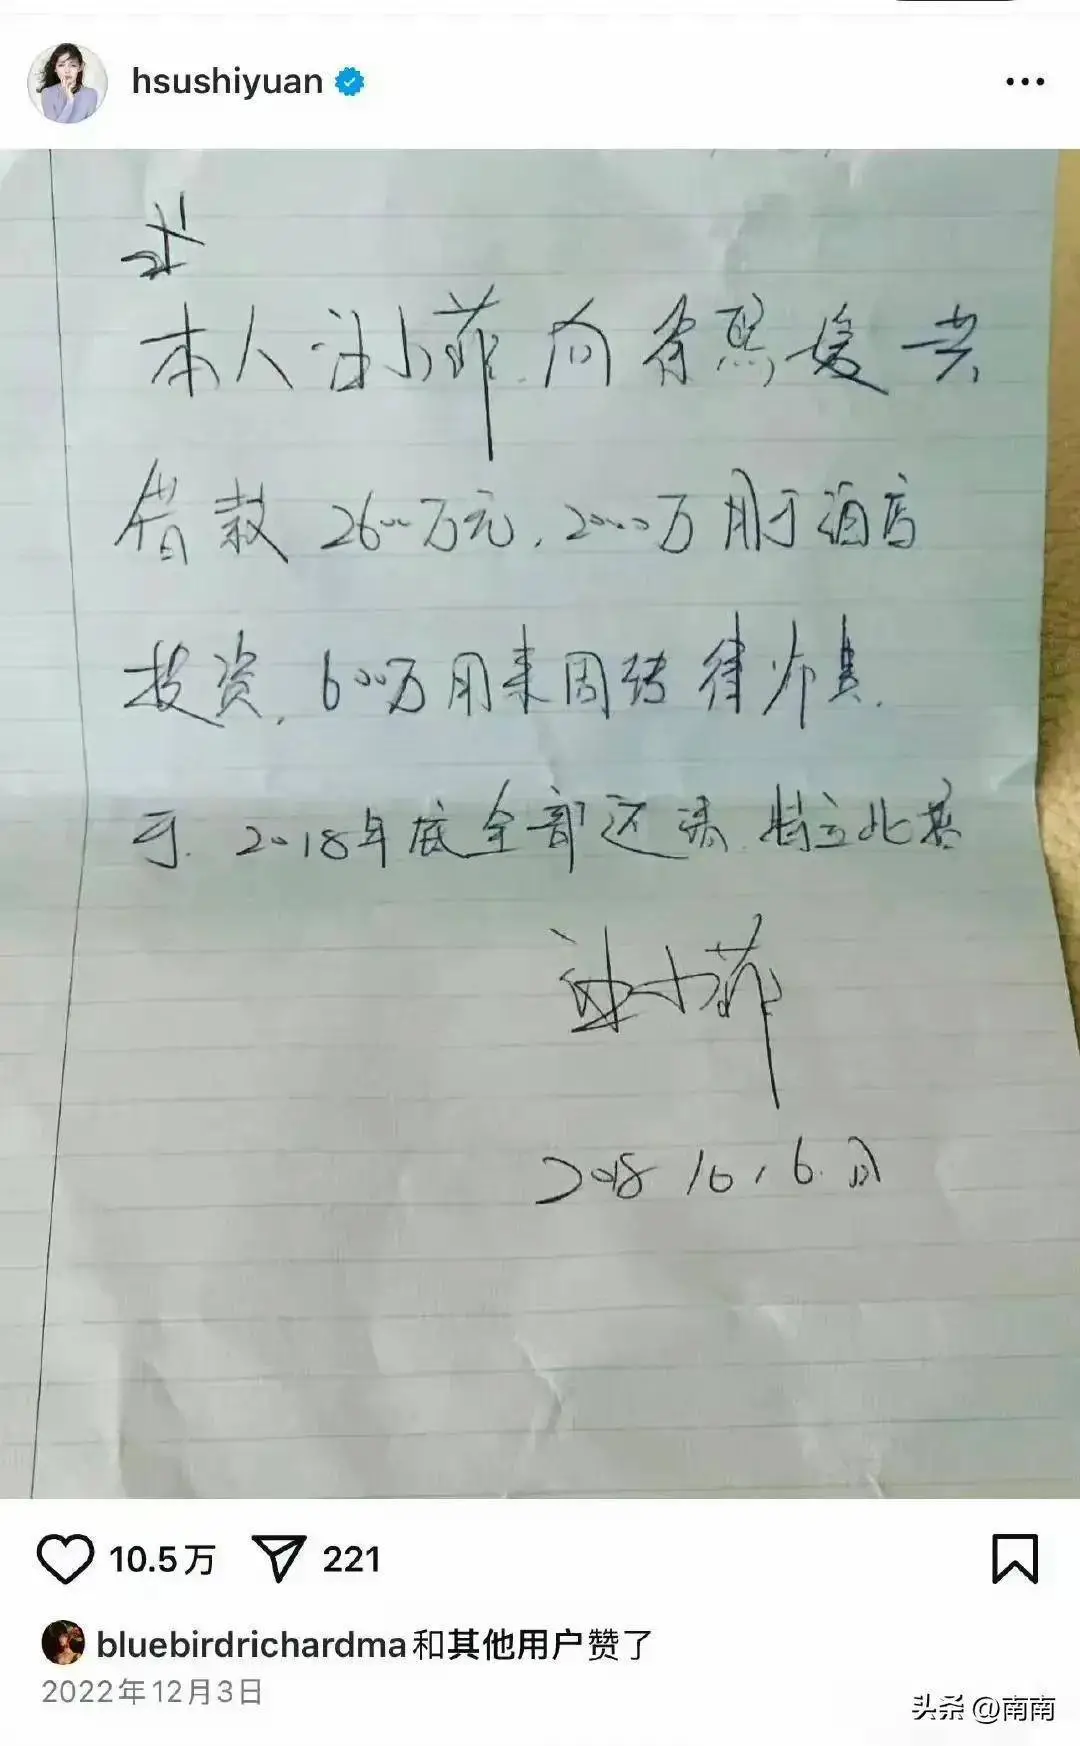 hsushiyuan
本人汪小菲向徐熙媛共
借款2600万元，2000万用于酒店
投资，600万用来周转律师费．
于．2018年底全部还清．特立此据
汪小菲
2018 10，6．
10.5万 221
bluebirdrichardma和其他用户赞了
2022年12月3日
头条 @南南